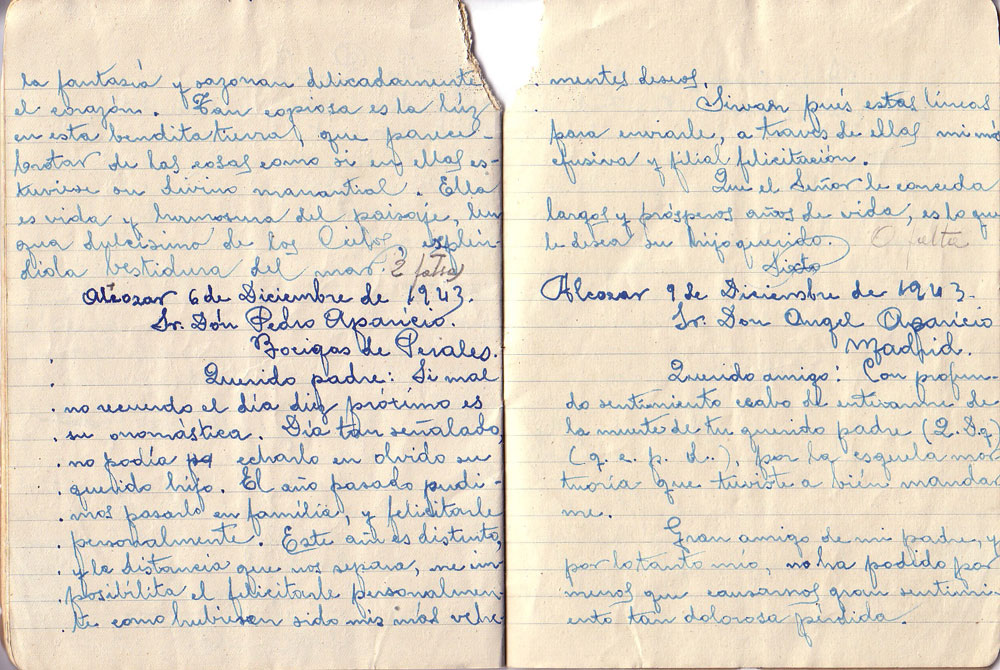 la fantasía y sazonan delicadamente
el corazón. Tan copiosa es la lúz
en esta bendita tierra, que parece
brotar de las cosas como si en ellas es-
tuviese un divino manantial. Ella
es vida y hermosura del paisaje, len
gua dulcísimo de los Cielos, esplén-
dida vestidura del mar. 2 faltas
Alcozar 6 de Diciembre de 1943.
Sr. Dón Pedro Aparicio.
Bocigas de Perales.
Querido padre: Si mal
no recuerdo el día diez próximo es
su onomástica. Día tan señalado,
no podía echarlo en olvido su
querido hijo. El año pasado pudi-
mos pasarlo en família, y felicitarle
personalmente. Este año es distinto,
y la distancia que nos separa, me im
posibílita el felicitarle personalmen-
te como hubiesen sido mis más vehe-
mentes deseos.
Sirvan pués estas líneas
para enviarle, a través de ellas mi más
efusiva y filial felicitación.
Que el Señor le conceda
largos y prósperos años de vida, es lo que
le desea su hijo querido. 0 falta
Sixto
Alcozar 9 de Diciembre de 1943.
Sr. Don Angel Aparicio
Madrid.
Querido amigo: Con profun-
do sentimiento acabo de enterarme de
la muerte de tu querido padre (Q. D. g)
(q. e. p. d.), por la esquela mor
tuoría que tuviste a bién mandar
me.
Gran amigo de mi padre, y
por lo tanto mío, no ha podido por
menos que causarnos gran sentimi-
ento tan dolorosa pérdida.